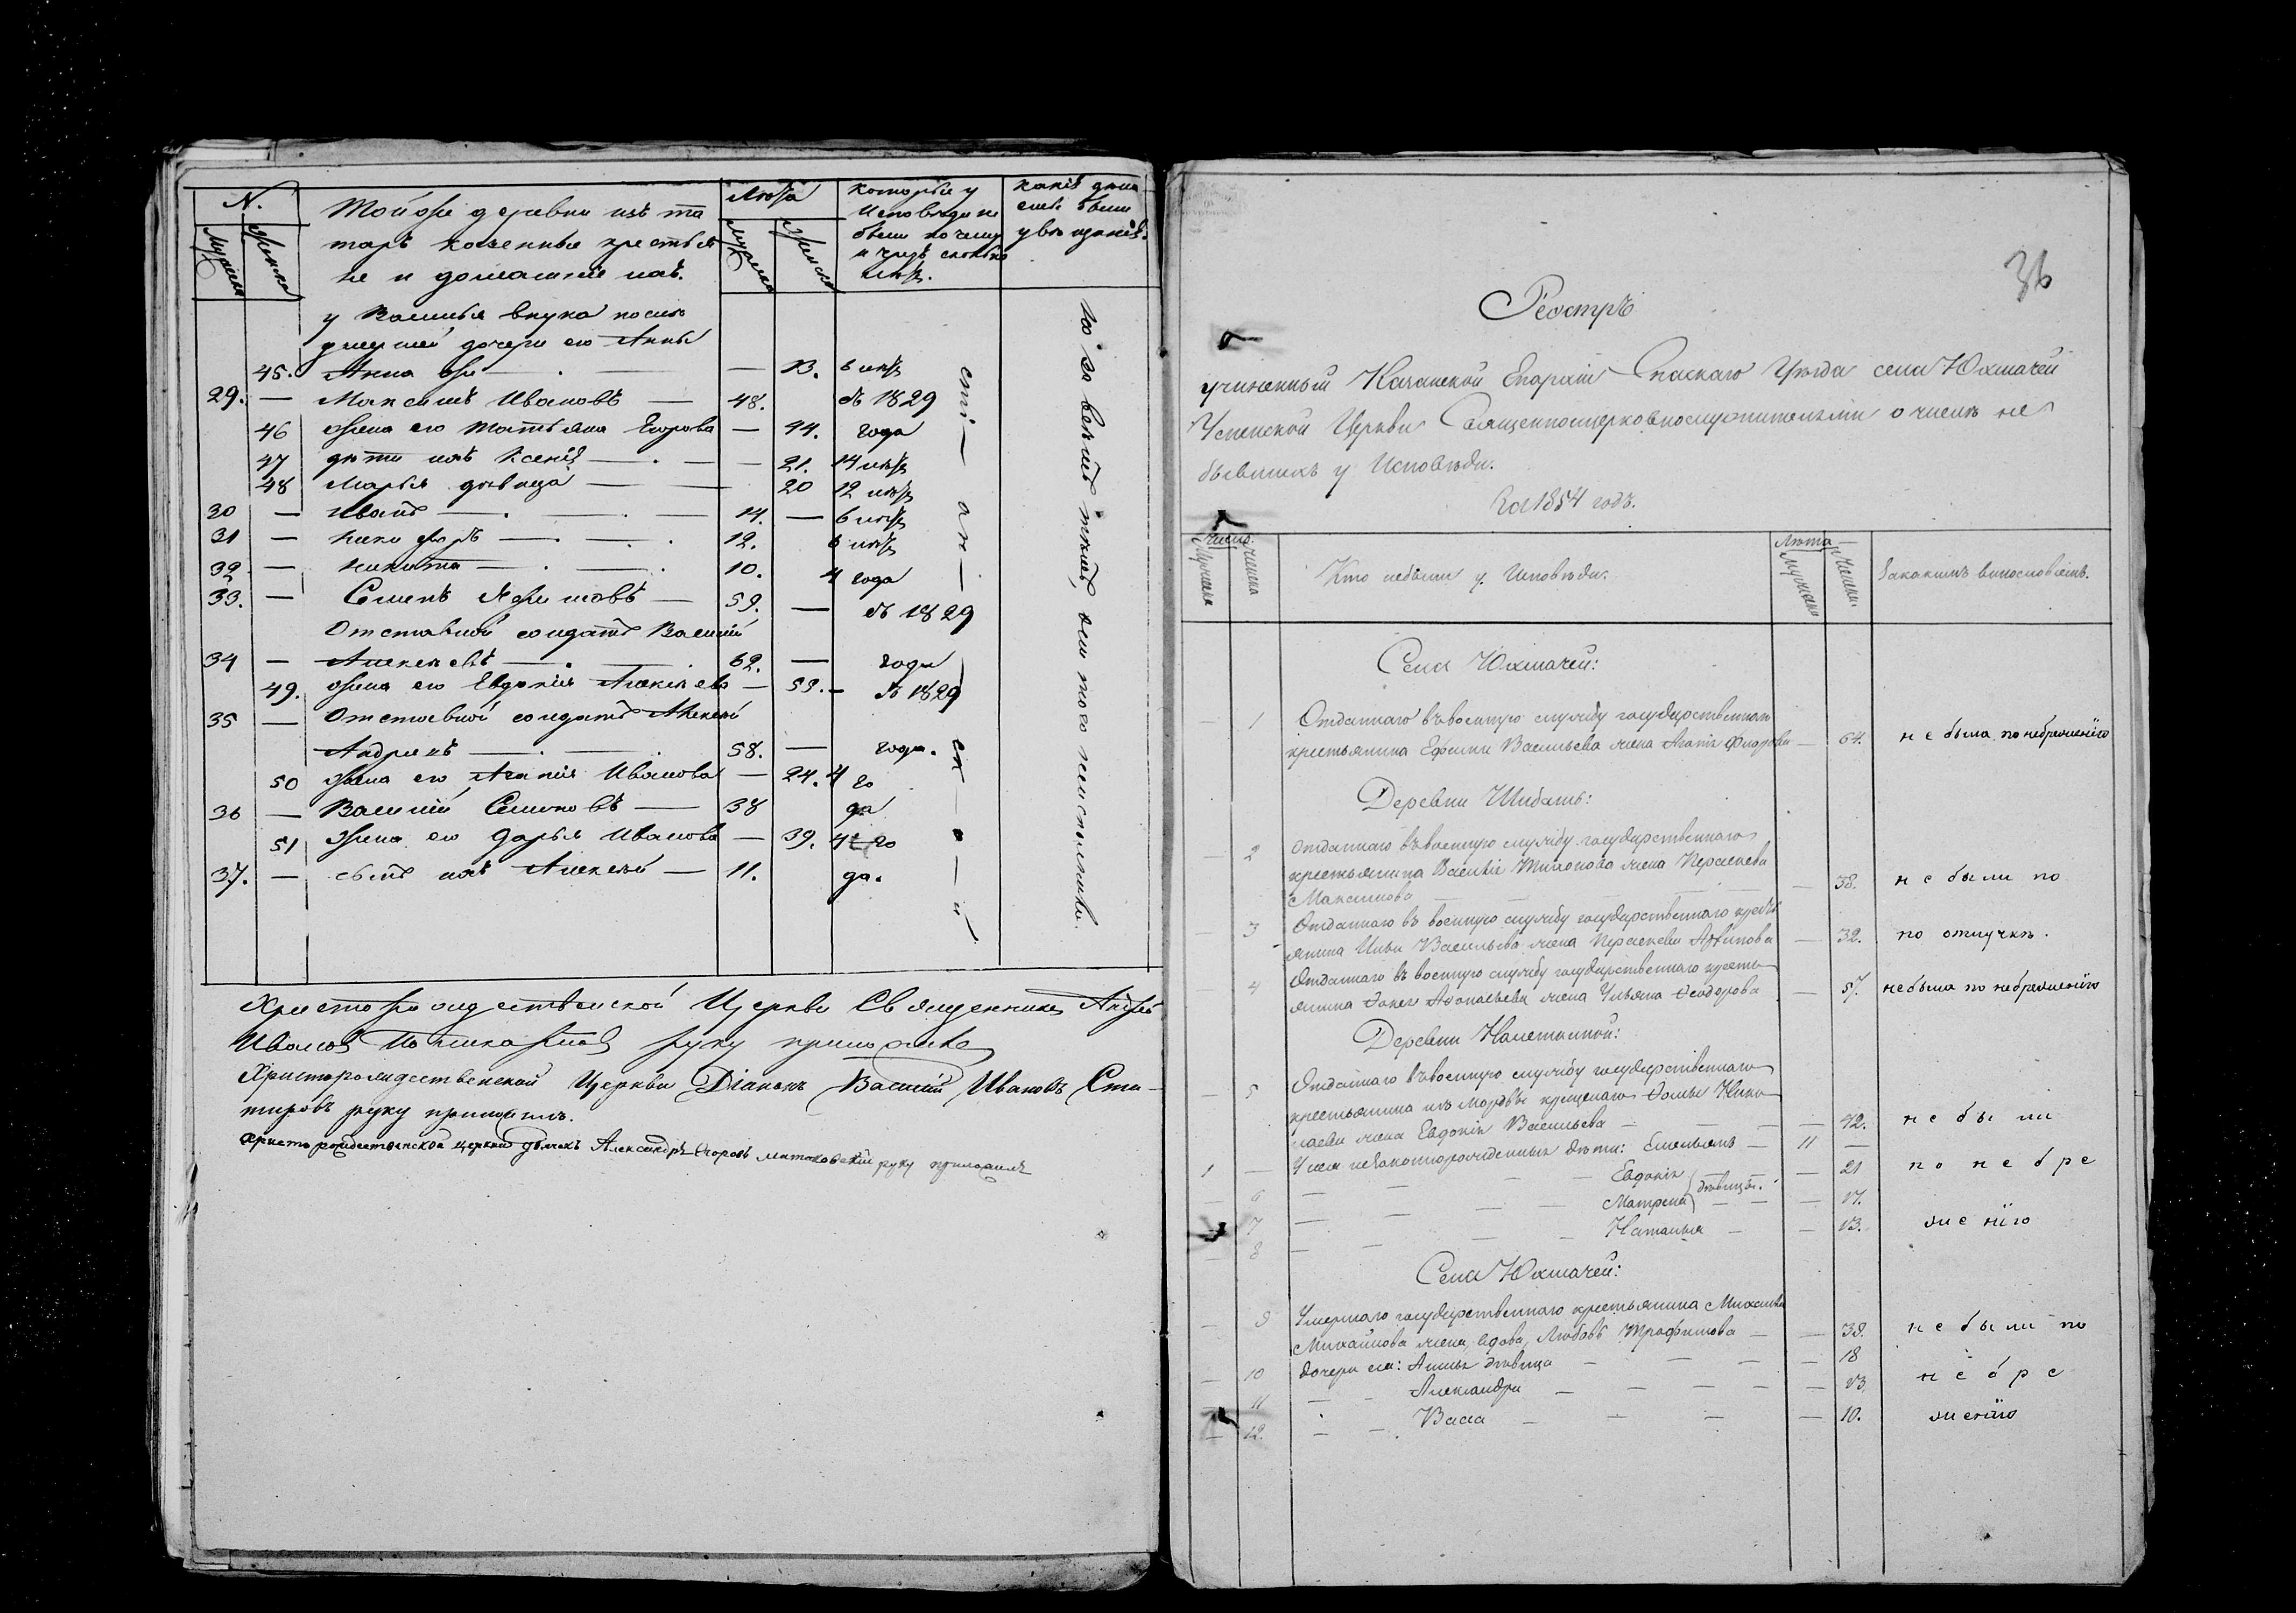 N.
Тойже деревни изъ та
таръ казенные крестья
не и домашніе ихъ.
Лѣта
которые у
Исповѣди не
были почему
и чрезъ сколько
лѣтъ.
какіе
были
Мужеска
Женска
Мужеска
Женска
у Василья внука после
умершей дочери его Анны
45. Анна же — — 13. 6 лѣтъ
29. — Максимъ Ивановъ — 48. съ 1829
46 жена его Татьяна Егорова — 44. года
47 дѣти ихъ Ксенія — — 21. 14 лѣтъ
48 Марья дѣвица — — 20 12 лѣтъ
30 — Иванъ — 14. — 6 лѣтъ
31 — Никифоръ — 12. 6 лѣтъ
32 — Никита — 10. 4 года
33. — Семенъ — 59. — съ 1829
Отставной солдатъ Василій
34 — Алексѣевъ — 62. — года
49. жена его Евдокія Алексѣева — 59. — съ 1829
35 — Отставной солдатъ Алексѣй
Андреевъ — 58. — года.
50 жена его Агапія Иванова — 24. 4 го
36 — Василій Семеновъ — 38 да
51 жена его Дарья Иванова — 39. 4 го
37. — сынъ ихъ Алексѣй — 11. да.
Христорождественской Церкви Священникъ Андрей
Ивановъ руку приложилъ
Христорождественской Церкви Діаконъ Василій Ивановъ Сти-
хировъ руку приложилъ.
Христорождественской церкви дьячекъ Александръ Егоровъ руку приложилъ
36
Реестръ
учиненный Казанской Епархіи Спаскаго Уѣзда села Юхмачей
Успенской Церкви Священноцерковнослужителями о числѣ не
бывшихъ у Исповѣди.
За 1854 годъ.
Число.
Мужеска
Женска
Кто небыли у Исповѣди.
Лѣта
Мужеска
Женска.
За какимъ винословіемъ.
Села Юхмачей:
— 1 Отданнаго въ военную службу государственнаго
крестьянина Ефима Васильева жена Агапія Федорова — 64. не была по небреженію
Деревни Шибаш:
— 2 Отданнаго въ военную службу государственнаго
крестьянина Василія жена Параскева
Максимова — — 38. не были по
— 3 Отданнаго въ военную службу государственнаго кресть
янина Ильи Васильева жена Параскева — 32. по отлучкѣ.
— 4 Отданнаго въ военную службу государственнаго кресть
янина жена Ульяна Ѳеодорова — 57. не была по небреженію
Деревни
— 5 Отданнаго въ военную службу государственнаго
крестьянина изъ мордвы крещенаго Ѳомы Нико
лаева жена Евдокія Васильева — — 42. не бы ли
1 — У нея незаконнорожденныя дѣти: Емельянъ — 11 —
— 6 — Евдокія } дѣвицы. — 21 по небре
— 7 — Матрена } — 17.
— 8 — Наталья — — 13. женію
Села Юхмачей:
— 9 Умершаго государственнаго крестьянина Михаила
Михайлова жена, вдова, Любовь Трофимова — — 39. не были по
— 10 дочери ея: Анна дѣвица — — 18 небре
— 11 — Александра — — 13.
— 12. — Васса — — 10. женію